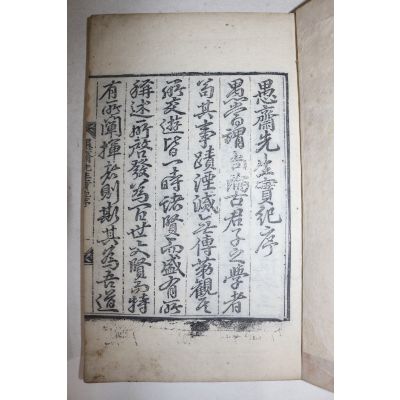 愚齋先生實紀序
愚嘗謂古君子之學者
苟其事蹟湮滅無傳第觀其
所交遊皆一時諸賢而盛有所
稱述所啓發為百世之賢而特
有所闡揮者則斯其為吾道